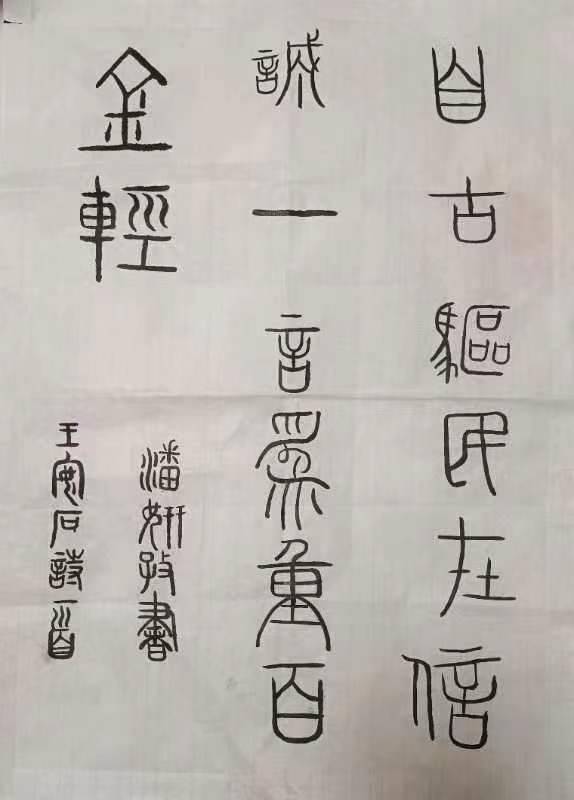 自古驅民在信
誠一言為重百
金輕
王安石詩一首
潘妍孜書